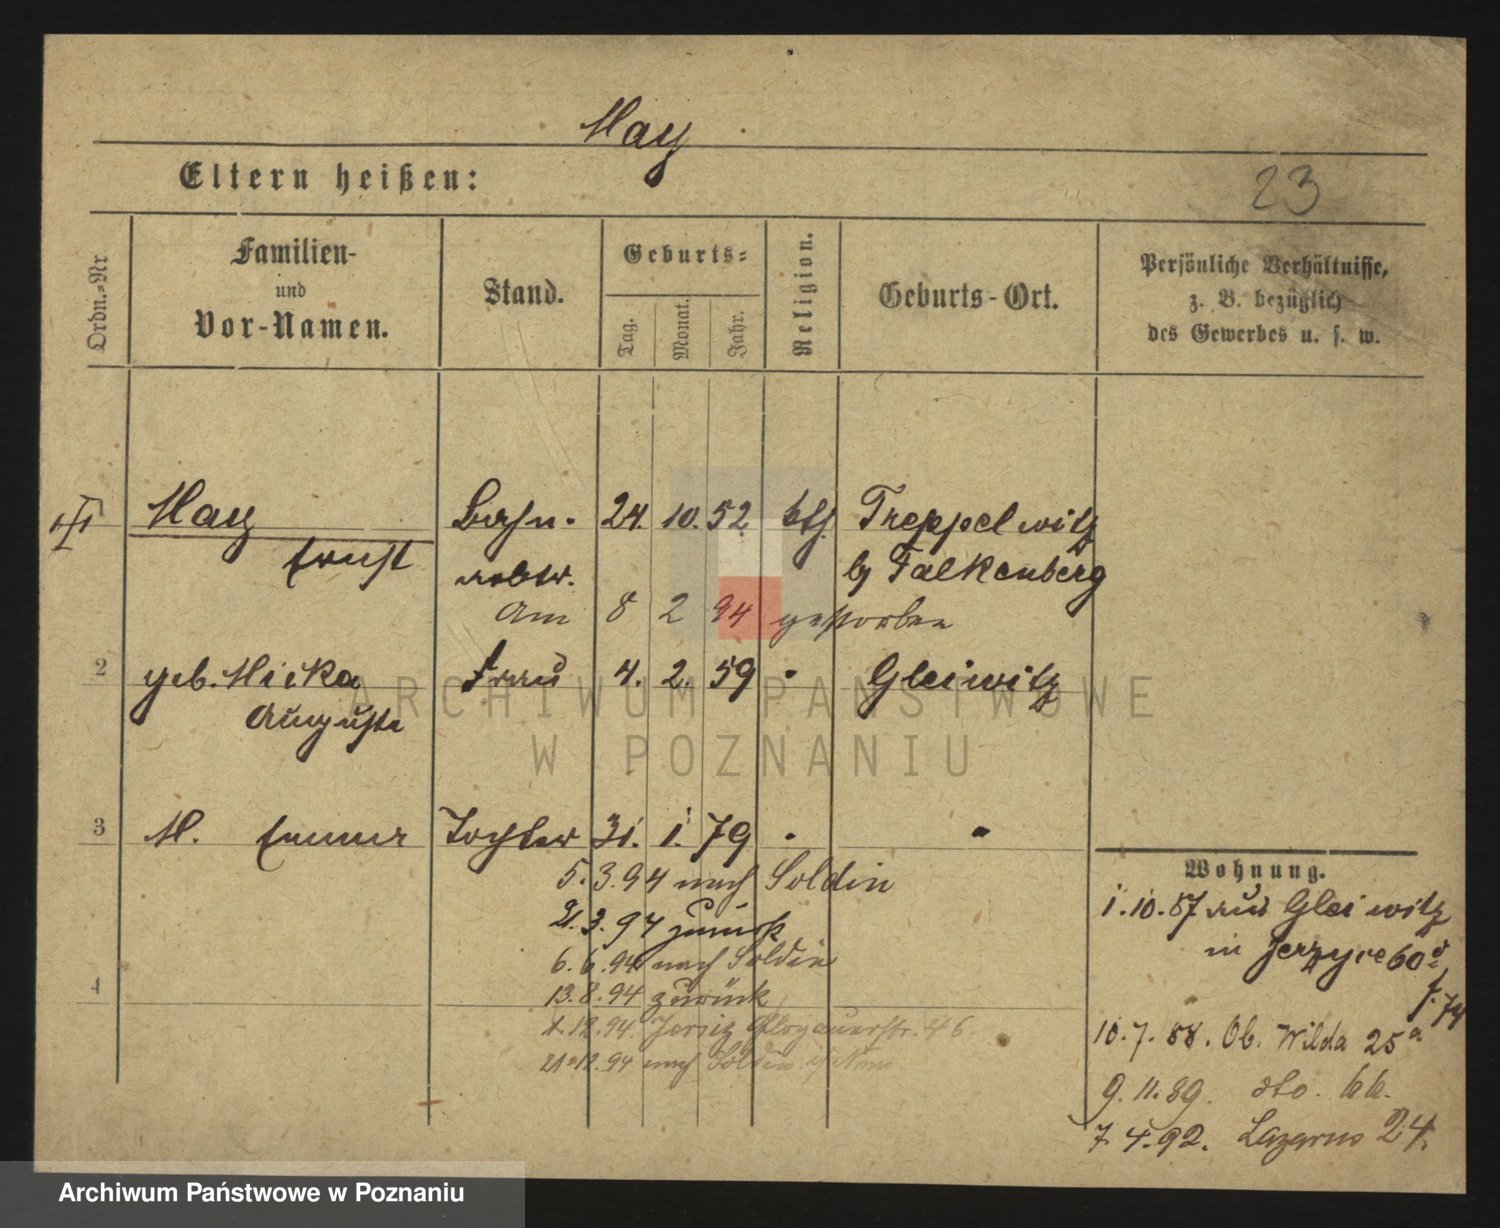 May
Eltern heißen:
23
Ordn.=Nr
Familien-
und
Vor-Namen.
Stand.
Geburts=
Tag.
Monat.
Jahr.
Religion.
Geburts-Ort.
Persönliche Verhältnisse,
z. B. bezüglich
des Gewerbes u. s. w.
May Bahn- 24. 10. 52 kth. Treppelwitz
Ernst arbtr. b/ Falkenberg
am 8 2 94 gestorben
2 geb. Micka Frau 4. 2. 59 " Gleiwitz
Auguste
3 M. Emma Tochter 31. 1. 79 " "
5.3.94 nach Soldin
21.3.94 zurück
6.6.94 nach Soldin
4
13.8.94 zurück
1.12.94. Jersitz Glogauerstr. 46
21.12.94 nach Soldin
Wohnung.
1.10.87 aus Gleiwitz
in Jerzyce 60
10.7.88. Ob. Wilda 25a
9.11.89. dto.
7.4.92. Lazarus 24.
ARCHIWUM PAŃSTWOWE
W POZNANIU
Archiwum Państwowe w Poznaniu